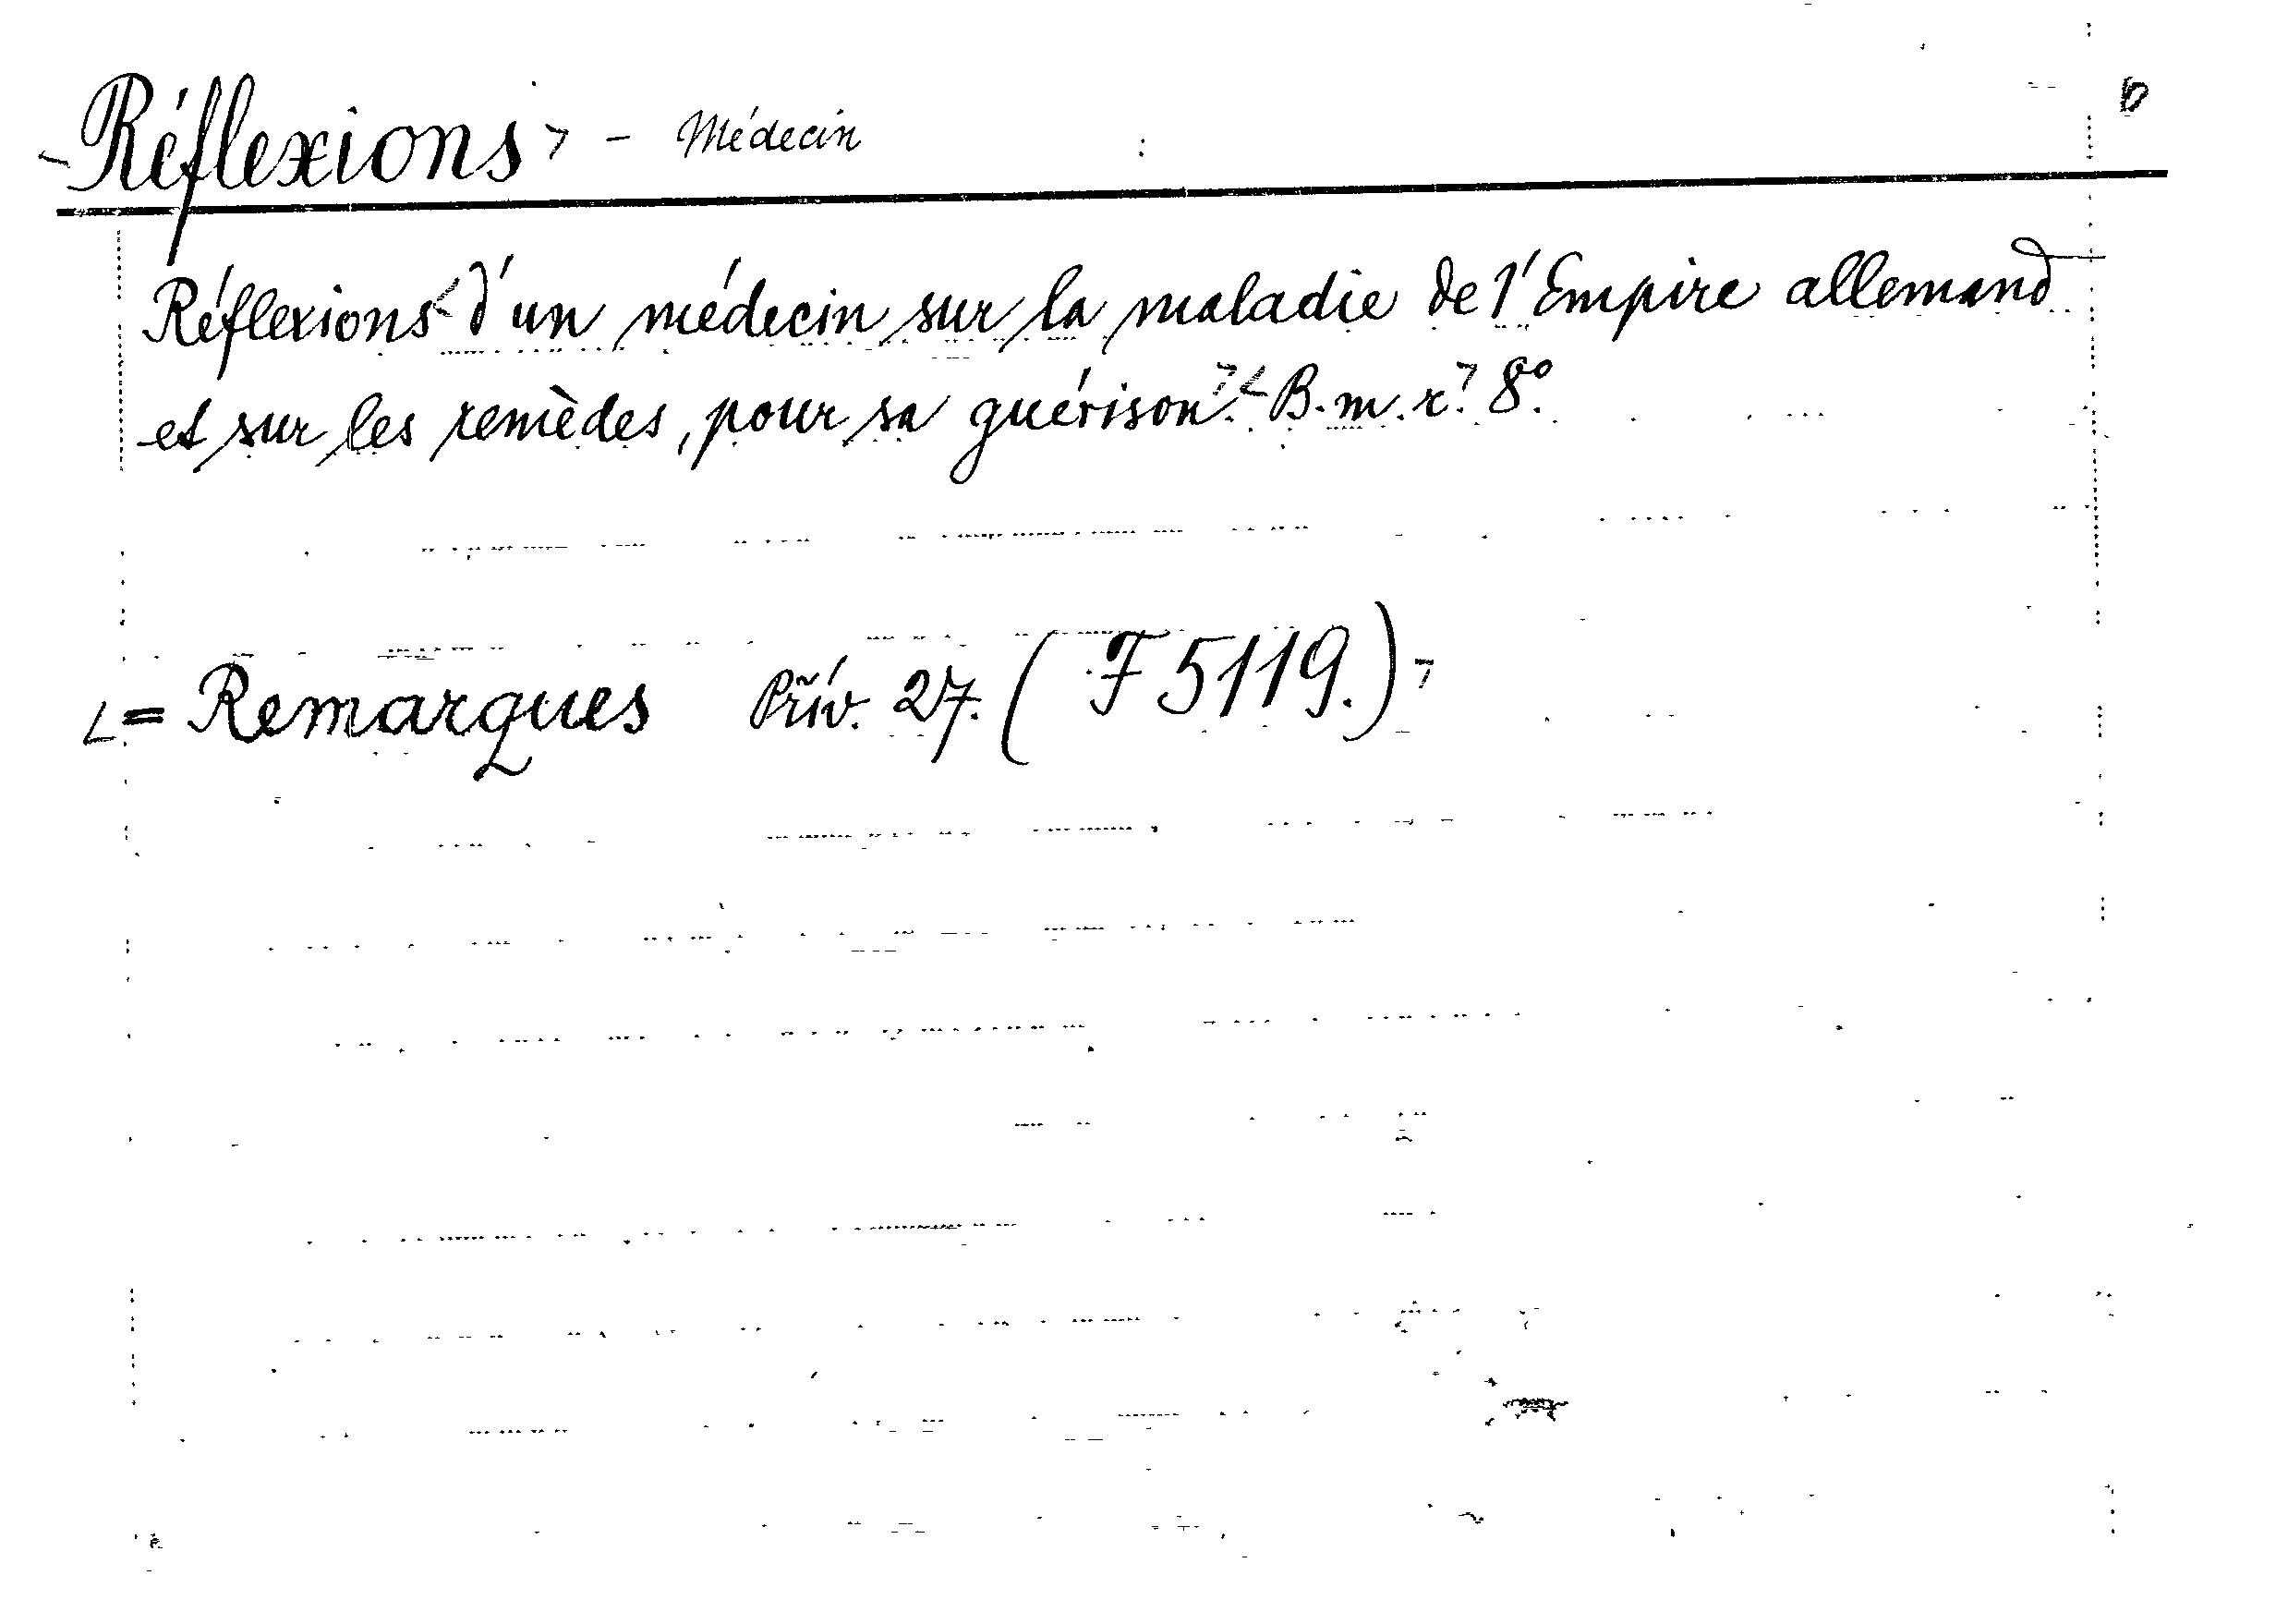 Réflexions - Médecin
Réflexions d'un médecin sur la maladie de l'Empire allemand
et sur les remèdes, pour sa guérison. B. m. r. 8°.
= Remarques Přív. 27. (F 5119.)